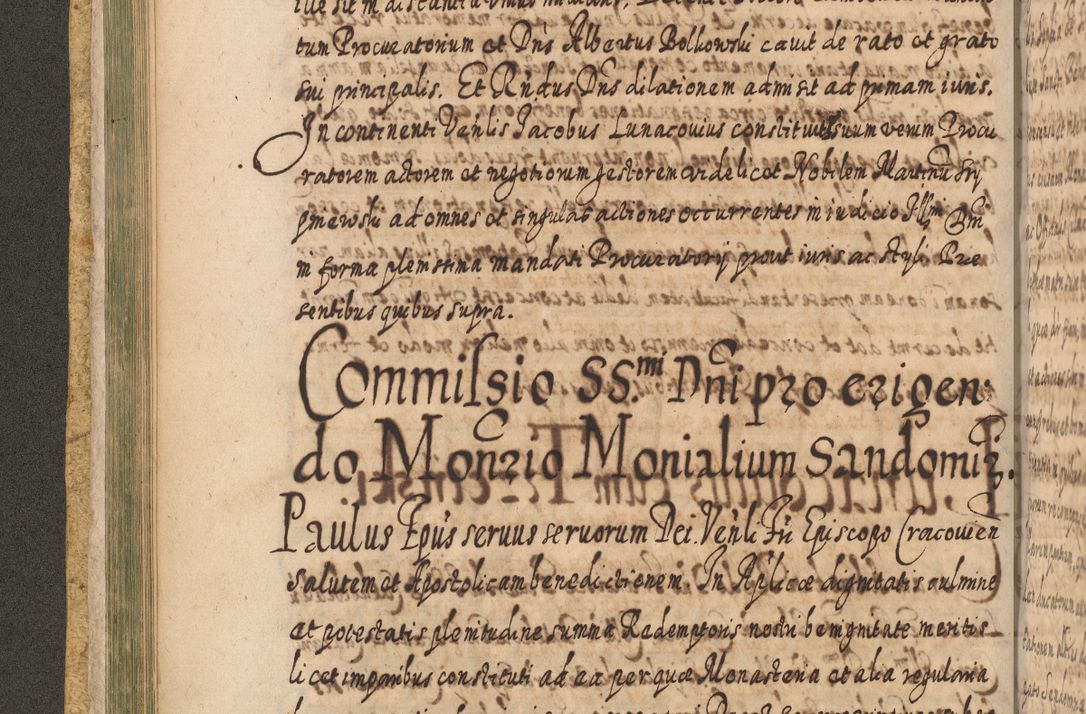 tum Procuratorium et Dns Albertus Bolkowski cavit de rato et grato
sui principalis. Et Rndus Dns dilationem admisit ad primam iuris.
In continenti Venlis Jacobus Lunacovius constituit suum verum Procu
ratorem actorem et negotiorum gestorem videlicet Nobilem Martinu Sry
pmewski ad omnes et singulas actiones occurrentes in iudicio Illm
in forma plenissima mandati Procuratorij prout iuris ac styli Pre
sentibus quibus supra.
Commissio SS.mi Dni pro erigen:
do Monrio Monialium Sandomir.
Paulus Epus servus servorum Dei. Venli Fri Episcopo Cracovien
salutem et Apostolicam benedictionem. In Aplicæ dignitatis culmine
et potestatis plenitudine summa Redemptoris nostri benignitate meritis
licet imparibus constituti ad ea per quæ Monasteria et alia regularia